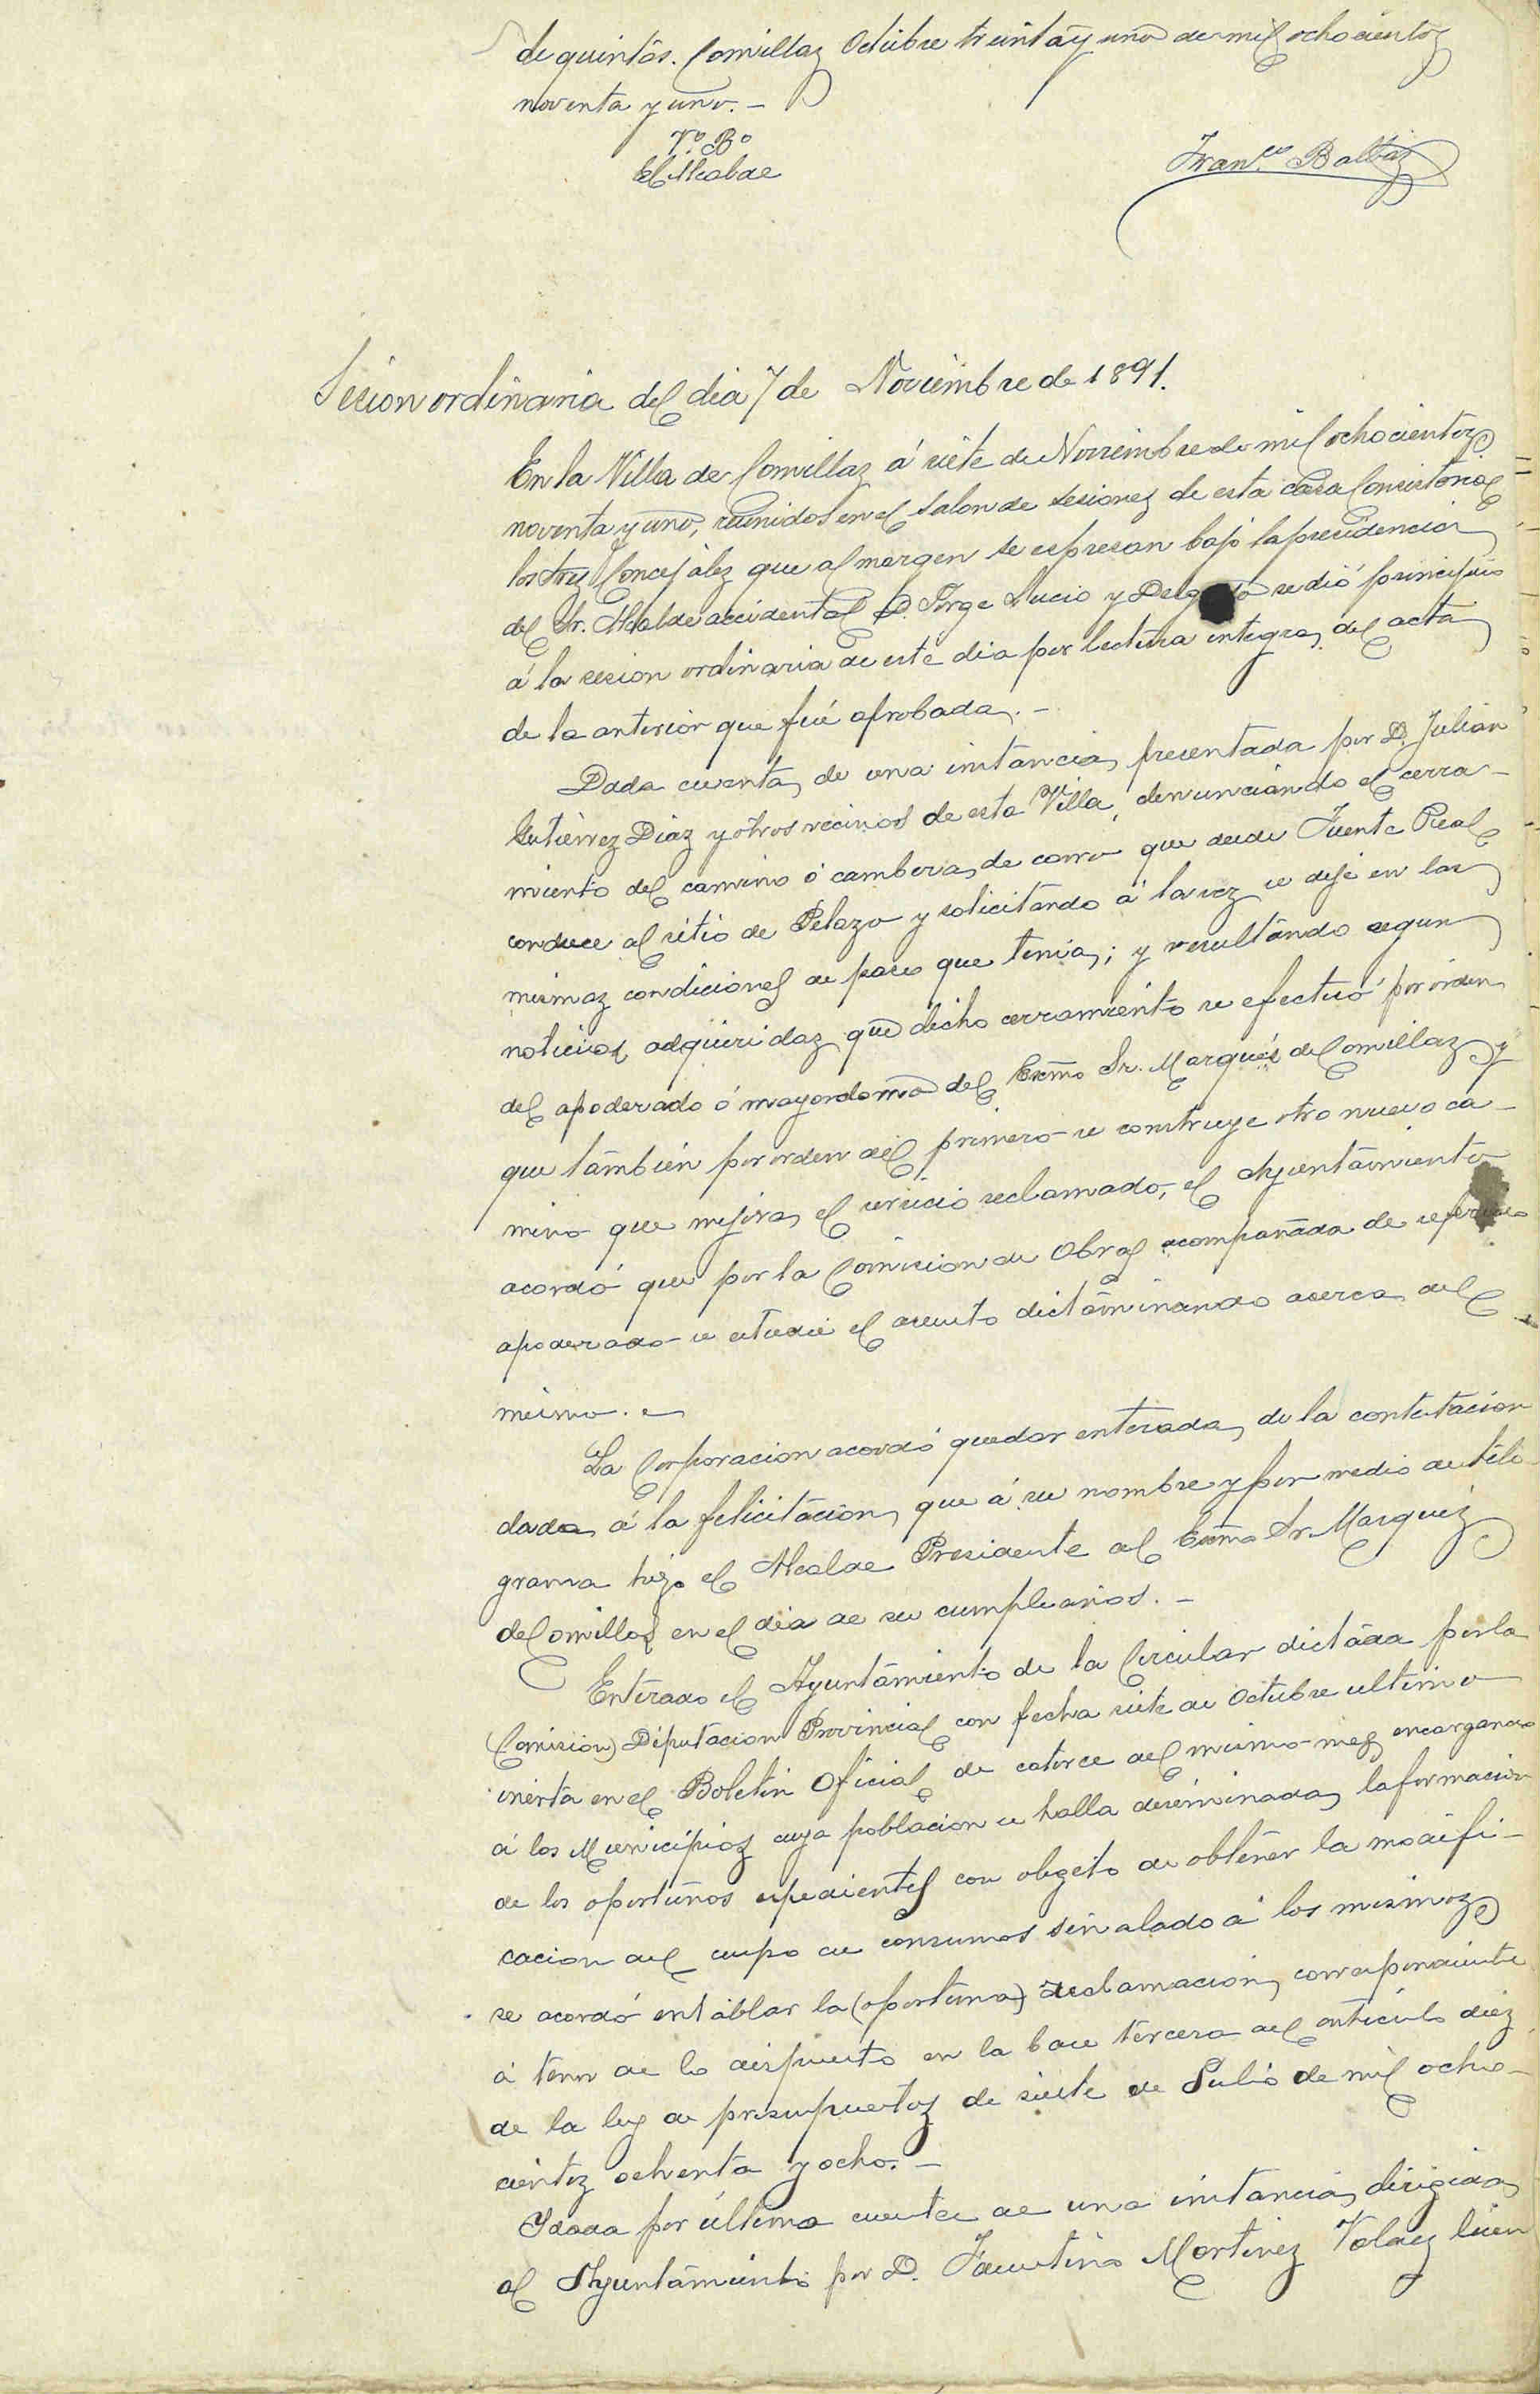 de quintos. Comillas Octubre treinta y uno de mil ochocientos
noventa y uno.-
Vº Bº
El Alcalde
Franco Balbás
Sesion ordinaria del dia 7 de Noviembre de 1891.
En la Villa de Comillas á siete de Noviembre de mil ochocientos
noventa y uno, reunidos en el salon de sesiones de esta casa Consistorial
los Sres Concejales que al margen se espresan bajo la presidencia
del Sr. Alcalde accidental D. Jorge Lucio y se dió principio
á la sesion ordinaria de este dia por lectura integra del acta
de la anterior que fué aprobada.-
Dada cuenta de una instancia presentada por D. Julian
Gutierrez Diaz y otros vecinos de esta Villa, denunciando el cerra-
miento del camino ó cambera de carro que desde Fuente Real
conduce al sitio de Pelazo y solicitando á la vez se deje en las
mismas condiciones de paso que tenia; y resultando segun
noticias adquiridas que dicho cerramiento se efectuó por orden
del apoderado ó mayordomo del Excmo Sr. Marqués de Comillas y
que tambien por orden del primero se construye otro nuevo ca-
mino que mejora el servicio reclamado, el Ayuntamiento
acordó que por la Comision de Obras acompañada de referido
apoderado se estudie el asunto dictaminando acerca del
mismo.-
La Corporacion acordó quedar enterada de la contestacion
dada á la felicitacion que á su nombre y por medio de tele-
grama hizo el Alcalde Presidente al Excmo Sr Marqués
de Comillas en el dia de su cumpleaños.-
Enterado el Ayuntamiento de la Circular dictada por la
(Comision) Diputacion Provincial con fecha siete de Octubre ultimo
inserta en el Boletin Oficial de catorce del mismo mes encargando
á los Municipios cuya poblacion se halla diseminada la formacion
de los oportunos espedientes con objeto de obtener la modifi-
cacion del cupo de consumos señalado á los mismos
se acordó entablar la (oportuna) reclamacion correspondiente
á tenor de lo dispuesto en la base tercera del articulo diez
de la ley de presupuestos de siete de Julio de mil ocho-
cientos ochenta y ocho.-
Y dada por último cuenta de una instancia dirigida
al Ayuntamiento por D. Faustino Martinez Valdez licen